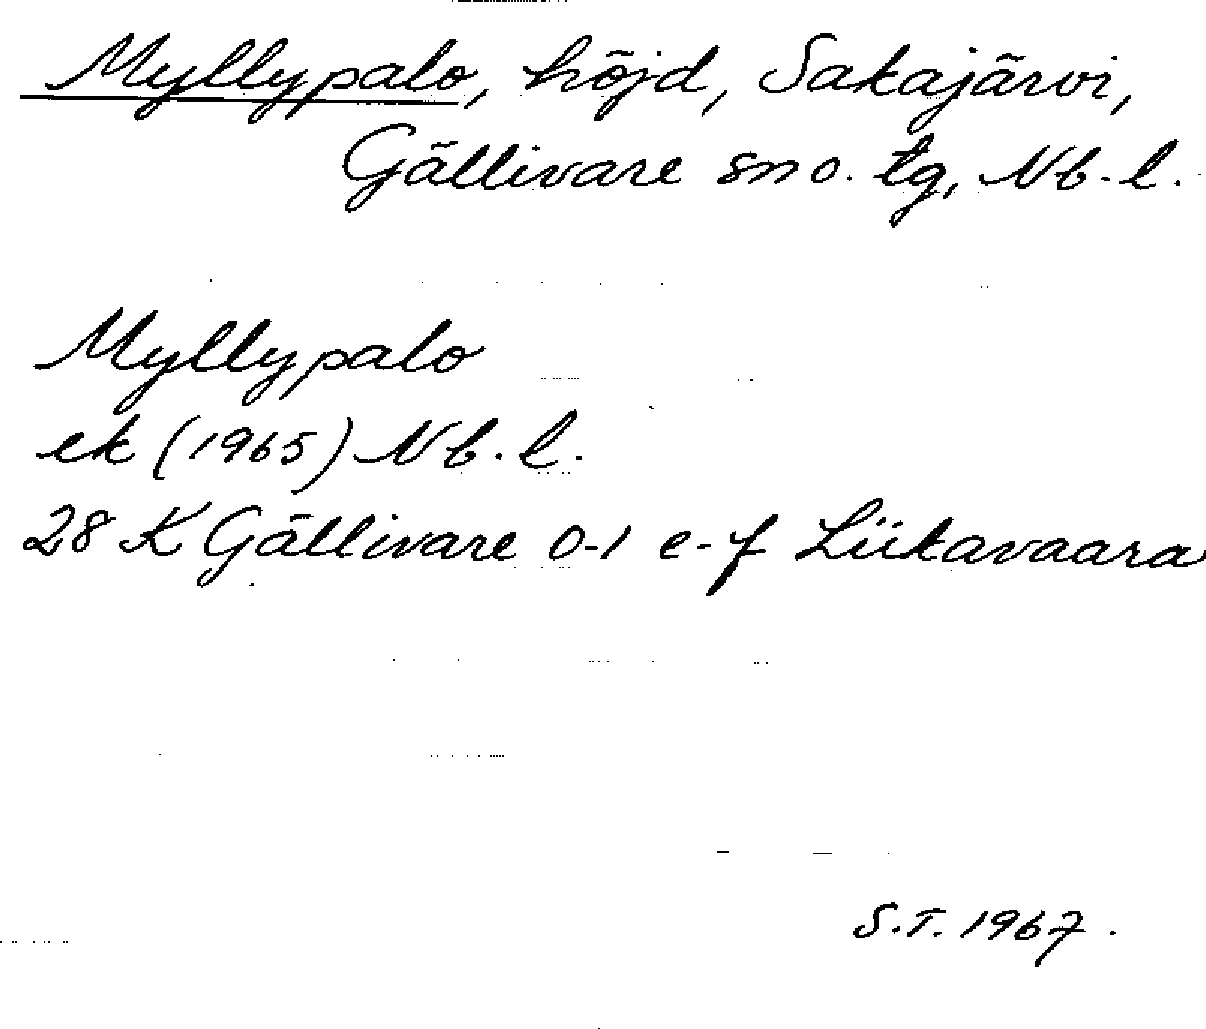 Myllypalo, höjd, Sakajärvi,
Gällivare sn o. tg, Nb. l.
Myllypalo
ek (1965) Nb. l.
28 K Gällivare 0-1 e-f Liikavaara
S.T. 1967.